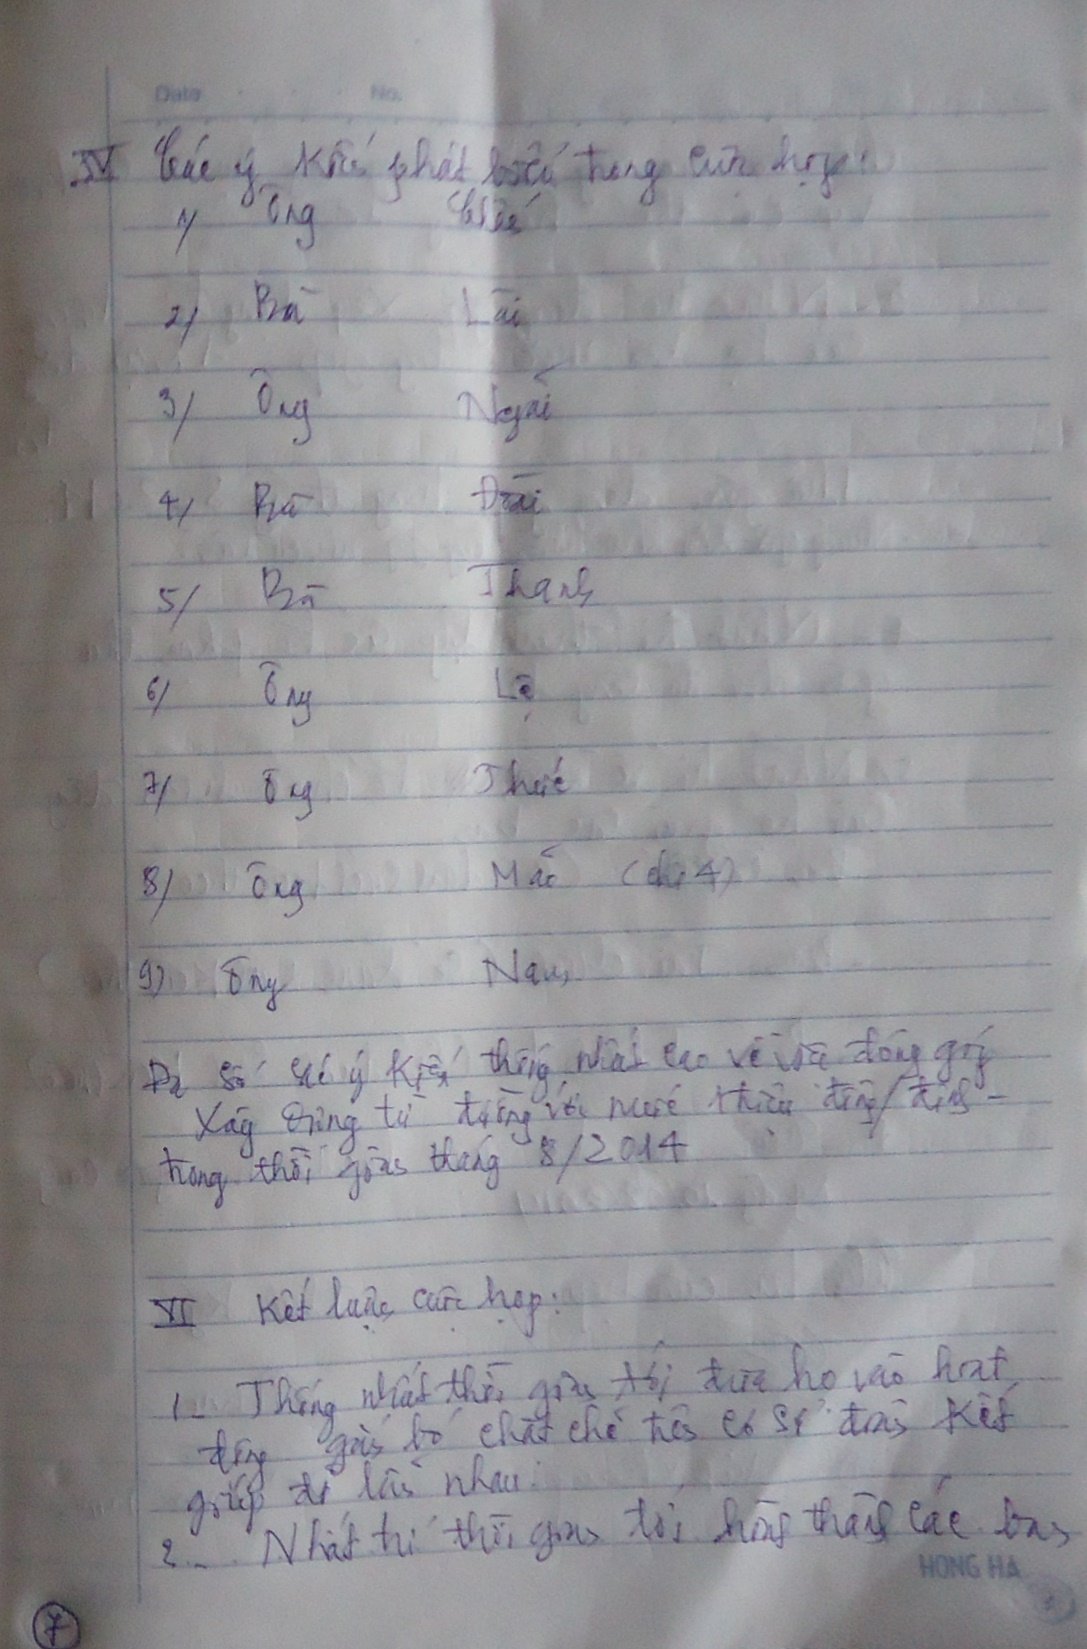 Date No.
IV Các ý kiến phát biểu trong cuộc họp:
1/ Ông
2/ Bà Lài
3/ Ông Ngãi
4/ Bà Đài
5/ Bà Thanh
6/ Ông Lệ
7/ Ông Thức
8/ Ông (chi 4)
9) Ông Nam
Đa số các ý kiến thống nhất cao về đóng góp
Xây dựng từ đường với mức
trong thời gian tháng 8/2014
VI Kết luận cuộc họp:
1- Thống nhất thời gian tới đưa họ vào hoạt
động gắn bó chặt chẽ trên cơ sở đoàn kết
giúp đỡ lẫn nhau.
2- Nhất trí thời gian tới hoàn thành các
HONG HA
7